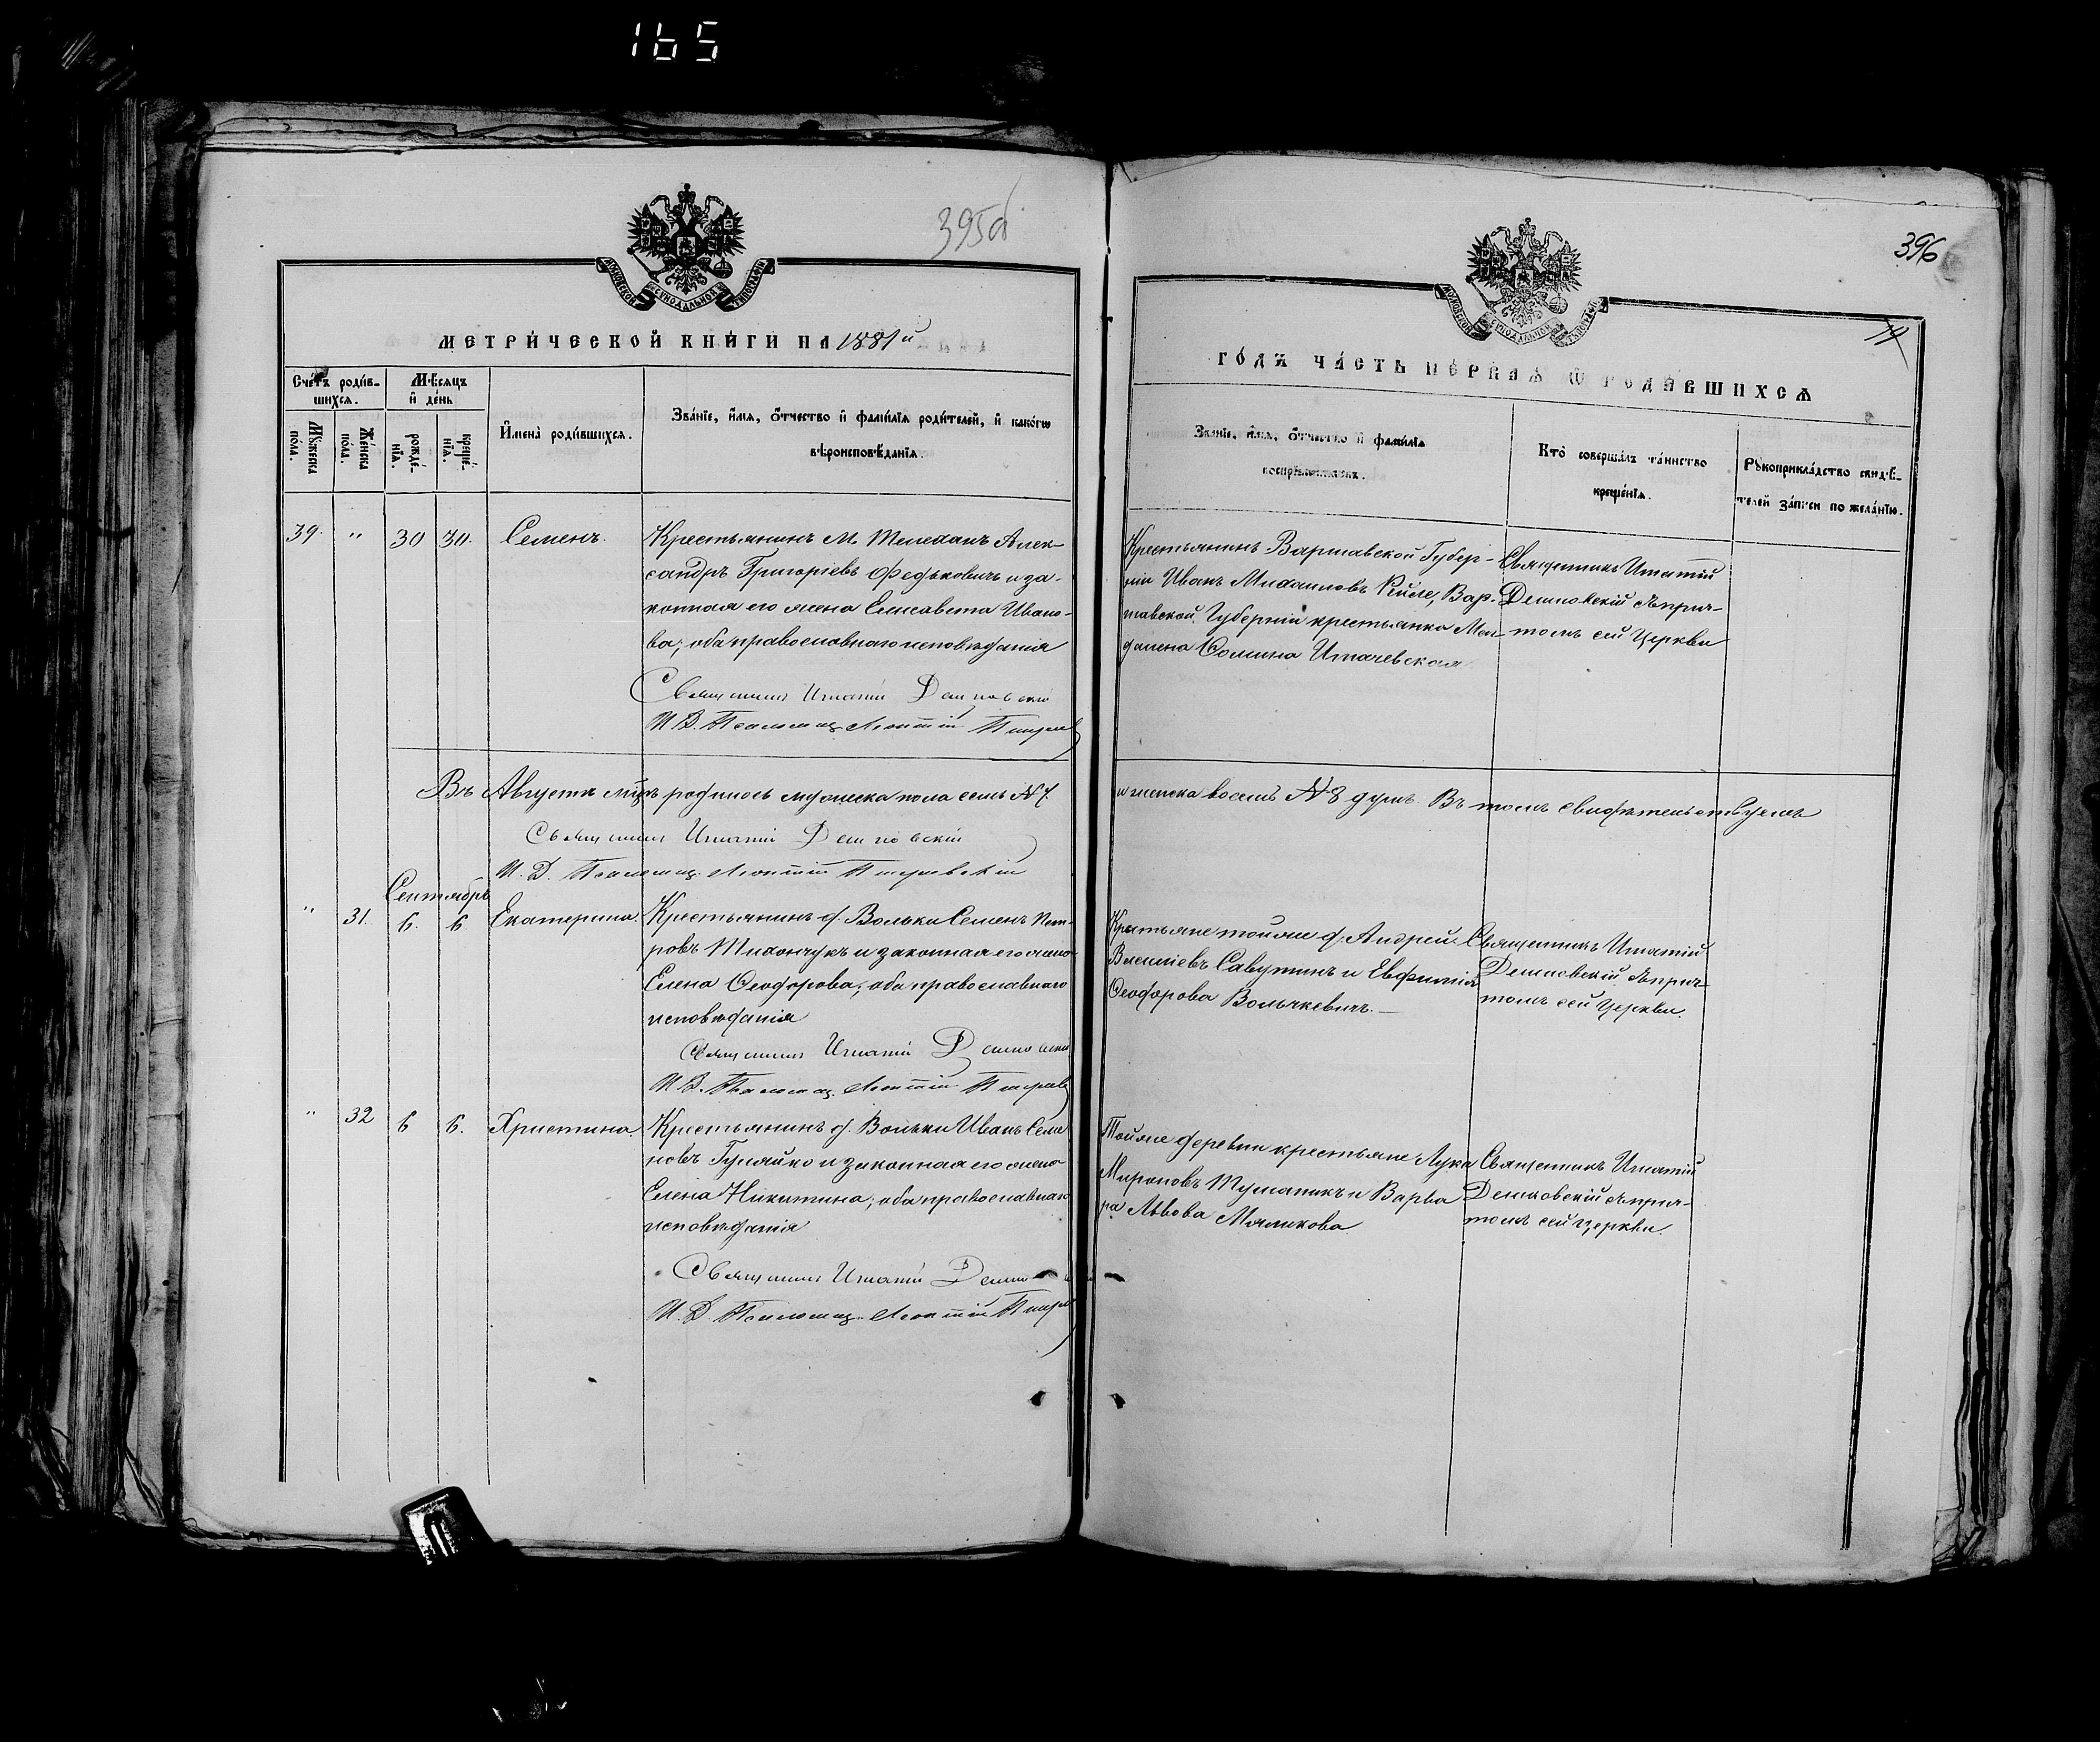 165
395об
МОСКОВСКОЙ СУНОДАЛЬНОЙ ТИПОГРАФІИ
МЕТРИ́ЧЕСКОЙ КНИ́ГИ НА 1881й
Сче́тъ роди́в-
шихсѧ.
Мѣ́сѧцъ
и҆ де́нь
Мꙋ́жеска
по́ла.
Же́нска
по́ла.
рожде́-
нїѧ.
креще́-
нїѧ.
И҆мена̀ роди́вшихсѧ.
Зва́нїе, и҆́мѧ, ѻ҆́тчество и҆ фамилїѧ роди́телей, и҆ како́гѡ
вѣроисповѣ́данїѧ.
39. " 30 30. Семенъ.
Крестьянинъ М. Телеханъ Алек-
сандръ Григоріевъ Федьковичъ и за-
конная его жена Елисавета Ивано-
ва; оба православнаго исповѣданія
Священникъ Игнатій
И. Д. Псаломщ. Леонтій
Въ Августѣ мцѣ родилось мужеска пола семь № 7.
Священникъ Игнатій
И. Д. Псаломщ. Леонтій
Сентябрь
" 31. 6. 6 Екатерина.
Крестьянинъ д. Вольки Семенъ Пет-
ровъ Тихончукъ и законная его жена
Елена Ѳеодорова; оба православнаго
исповѣданія
Священникъ Игнатій
И. Д. Псаломщ. Леонтій
" 32 6 6. Христина.
Крестьянинъ д. Вольки Иванъ Семе
новъ Гуляйко и законная его жена
Елена Никитина; оба православнаго
исповѣданія
Священникъ Игнатій
И. Д. Псаломщ. Леонтій
396
МОСКОВСКОЙ СУНОДАЛЬНОЙ ТИПОГРАФІИ
ГО́ДЪ ЧА́СТЬ ПЕ́РВАѦ Ѽ РОДИ́ВШИХСѦ
Зва́нїе, и҆́мѧ, ѻ҆́тчество и҆ фами́лїѧ
воспрїемниковъ.
Кто̀ соверша́лъ та́инство
креще́нїѧ.
Рꙋкоприкла́дство свидѣ́-
телей за́писи по жела́нїю.
Крестьянинъ Варшавской Губер-
ніи Иванъ Михаиловъ Рейле, Вар-
шавской Губерніи крестьянка Маг-
далена
Священникъ Игнатій
съ прич-
томъ сей Церкви
и женска восемь № 8 душъ. Въ томъ свидѣтельствуемъ
Крестьяне тойже д. Андрей
Василіевъ Савутинъ и Евфимія
Ѳеодорова Волычкевичъ.
Священникъ Игнатій
съ прич-
томъ сей Церкви.
Тойже деревни крестьяне Лука
Мироновъ Тушаникъ и Варва
ра Львова Мяликова.
Священникъ Игнатій
съ прич-
томъ сей церкви.